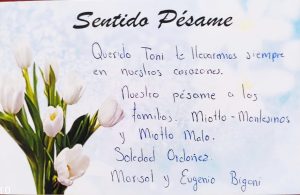 Sentido Pésame
Querido Toni te llevaremos siempre
en nuestros corazones.
Nuestro pésame a las
familias. Miotto-Montesinos
y Miotto Malo.
Soledad Ordoñez.
Marisol y Eugenio Bigoni